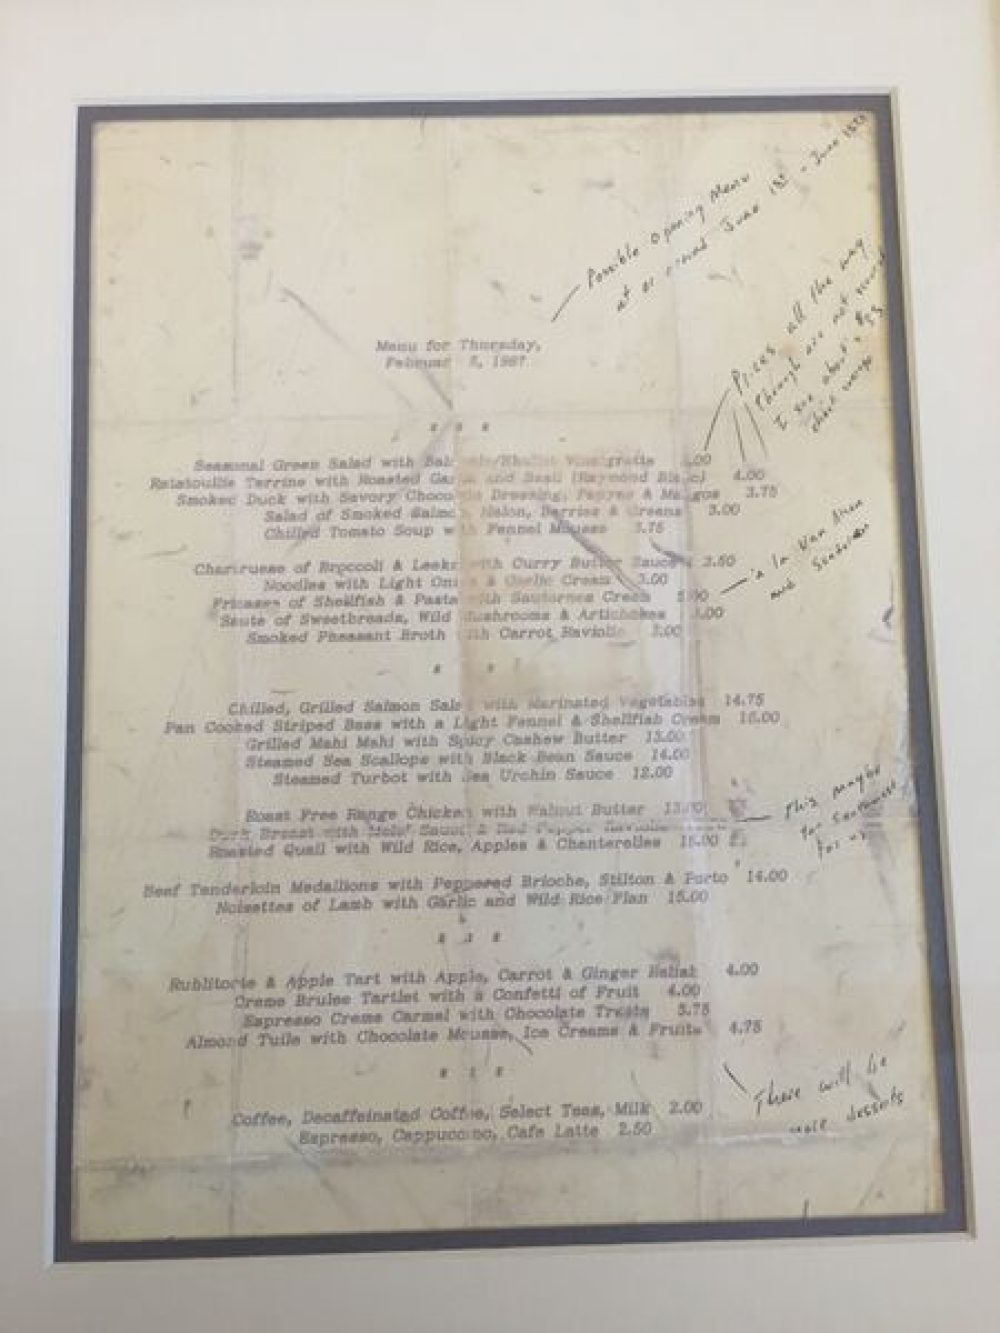 Possible Opening Menu
at or around June 1st - June 15th
Menu for Thursday,
1987
Prices all the way
through are not
I see about $55
Seasonal Green Salad with Vinaigrette
Ratatouille Terrine with Roasted and Basil (Raymond Blanc) 4.00
Smoked Duck with Savory Dressing, Papaya & Mangos 3.75
Salad of Smoked Salmon, Melon, Berries & Greens 3.00
Chilled Tomato Soup with Fennel Mousse 3.75
Chartruese of Broccoli & Leeks with Curry Butter Sauce 3.50
Noodles with Light & Garlic Cream 3.00
Fricasee of Shellfish & Pasta with Sauternes Cream
Saute of Sweetbreads, Wild Mushrooms & Artichokes
Smoked Pheasant Broth with Carrot Raviolis
Chilled, Grilled Salmon with Marinated Vegetables 14.75
Pan Cooked Striped Bass with a Light Fennel & Shellfish Cream 16.00
Grilled Mahi Mahi with Spicy Cashew Butter 13.00
Steamed Sea Scallops with Black Bean Sauce 14.00
Steamed Turbot with Sea Urchin Sauce 12.00
Roast Free Range Chicken with Walnut Butter
Duck Breast with Sauce & Red Pepper
Roasted Quail with Wild Rice, Apples & Chanterelles
This maybe
for us
Beef Tenderloin Medallions with Peppered Brioche, Stilton & Porto 14.00
Noisettes of Lamb with Garlic and Wild Rice Flan 15.00
& Apple Tart with Apple, Carrot & Ginger 4.00
Creme Brulee Tartlet with a Confetti of Fruit 4.00
Espresso Creme Carmel with Chocolate Treats 3.75
Almond Tuile with Chocolate Mousse, Ice Creams & Fruits 4.75
There will be
more desserts
Coffee, Decaffeinated Coffee, Select Teas, Milk 2.00
Espresso, Cappuccino, Cafe Latte 2.50